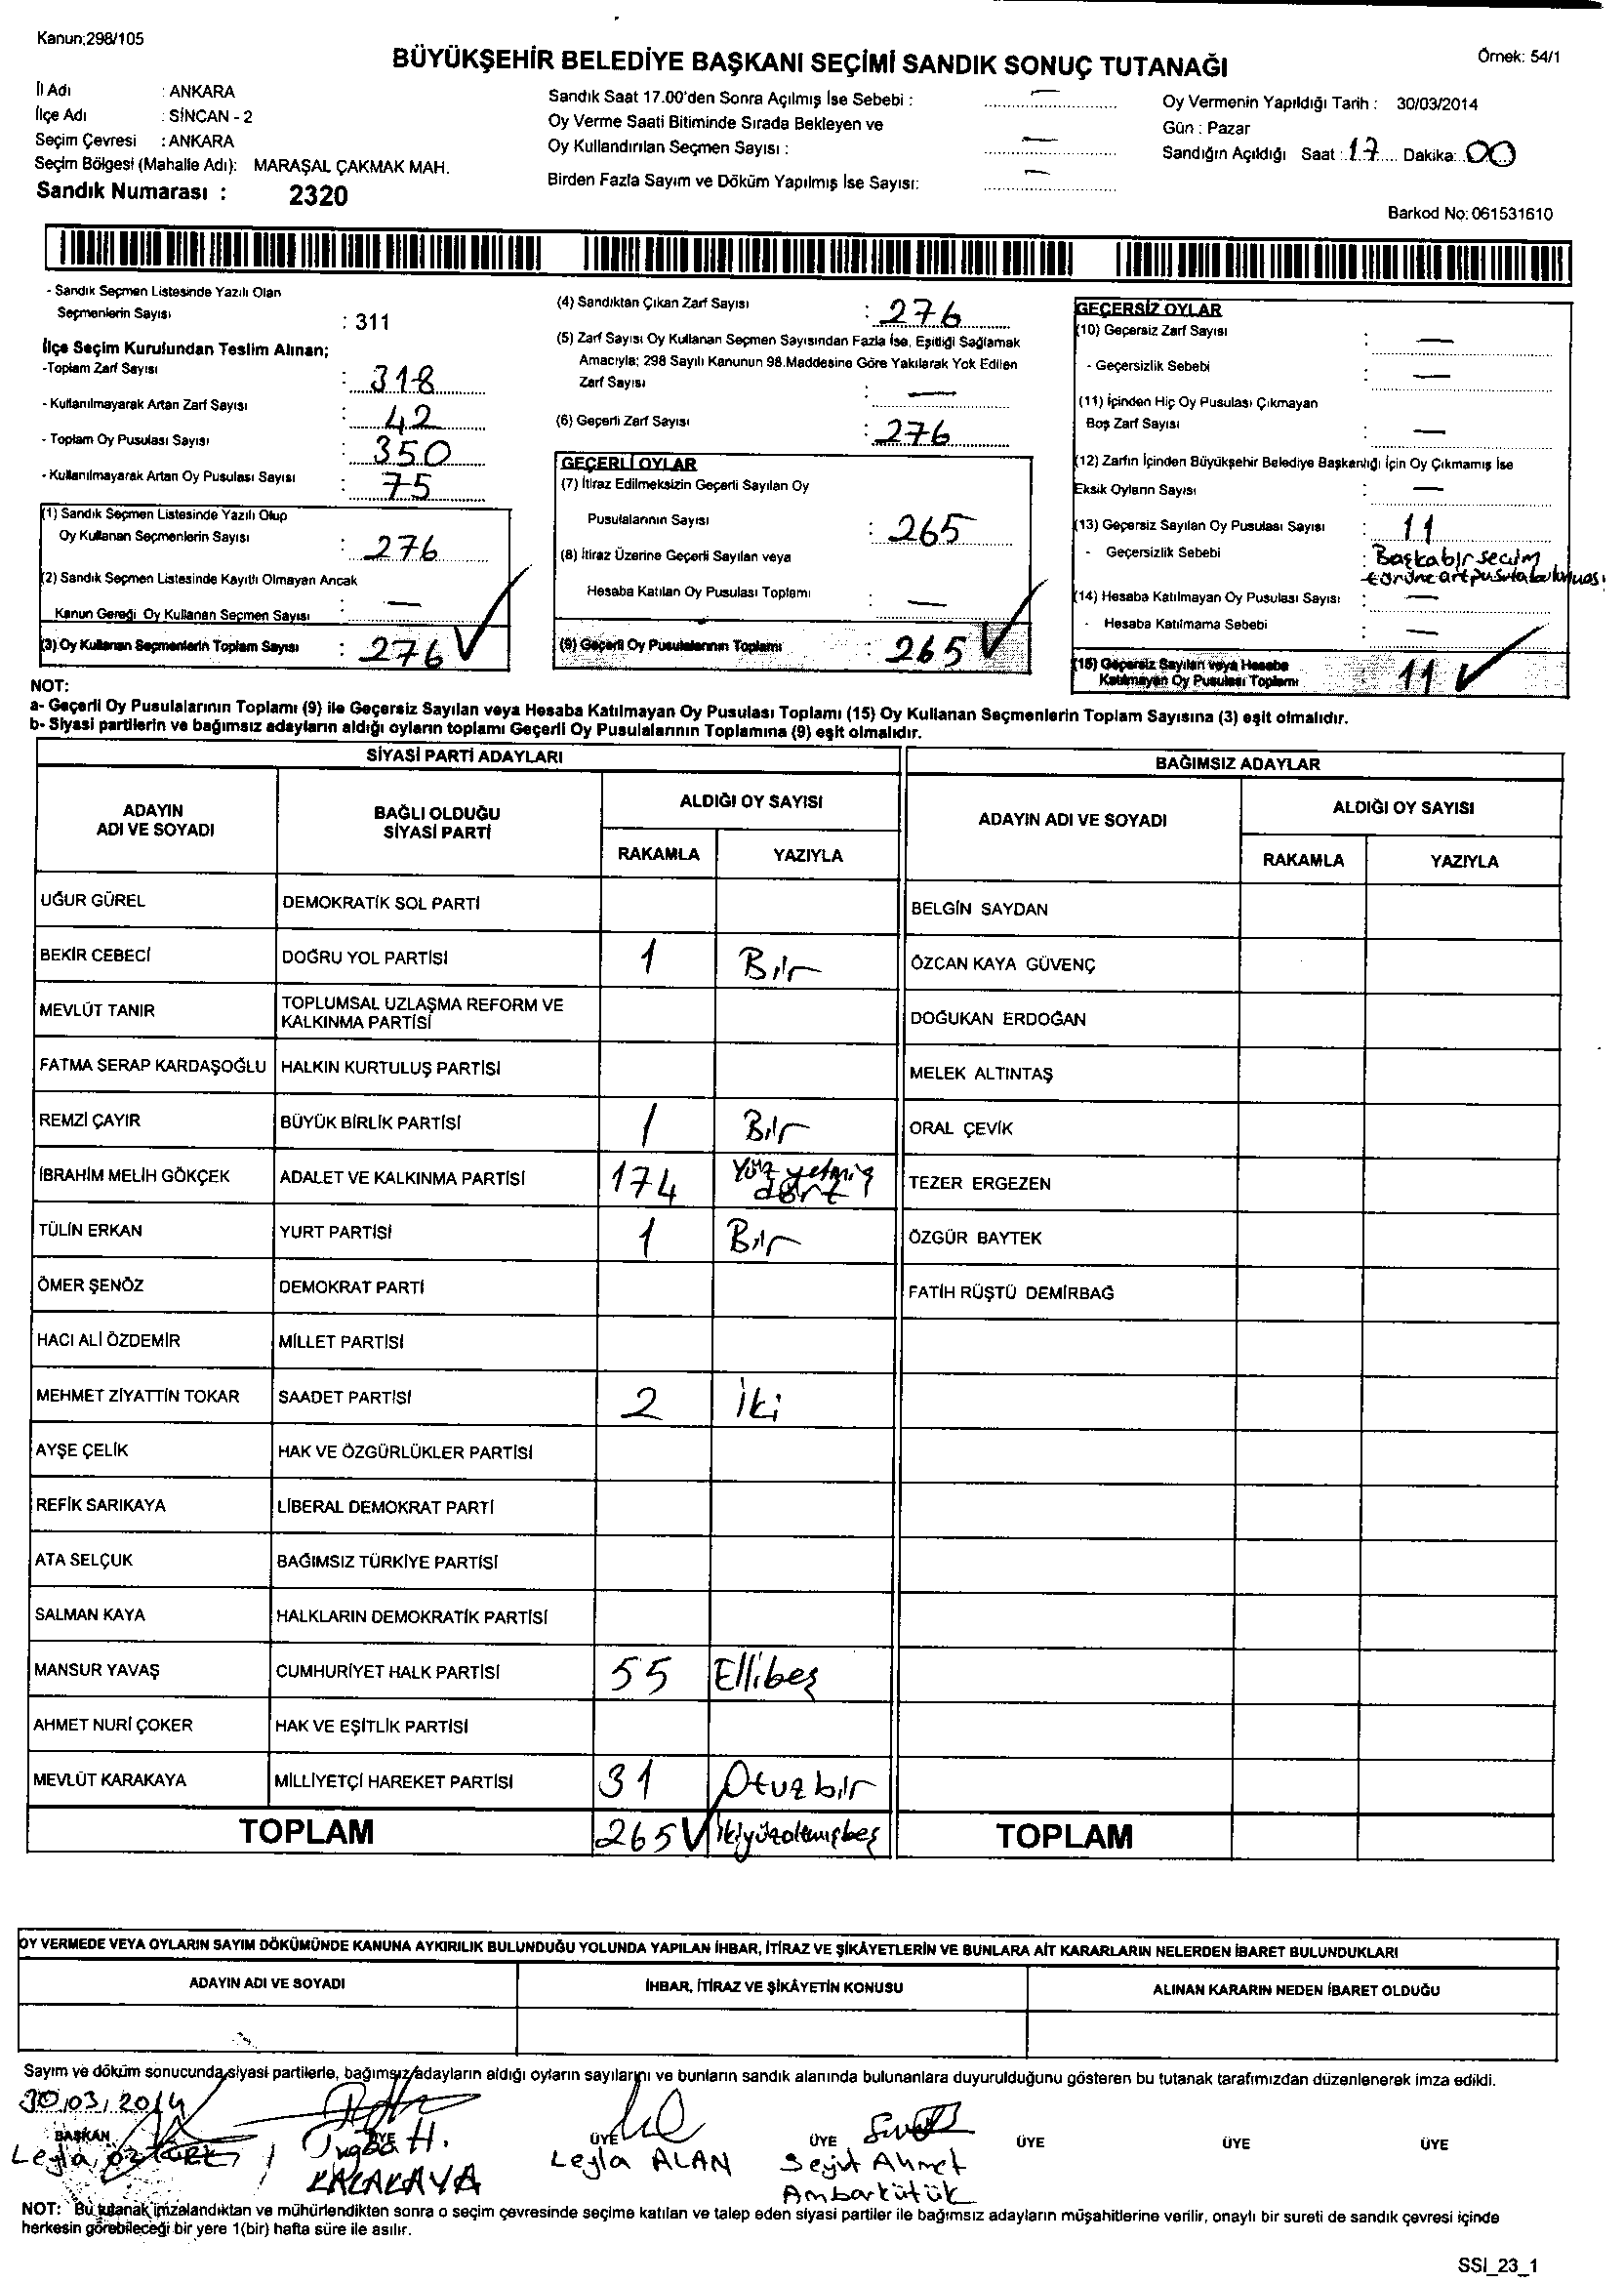 Kanun;298/105
BÜYÜKŞEHİR BELEDİYE BAŞKANI SEÇİMİ SANDIK SONUÇ TUTANAĞI
Örnek: 54/1
İl Adı : ANKARA
İlçe Adı : SİNCAN - 2
Seçim Çevresi : ANKARA
Seçim Bölgesi (Mahalle Adı): MARAŞAL ÇAKMAK MAH.
Sandık Numarası : 2320
Sandık Saat 17.00'den Sonra Açılmış İse Sebebi : —
Oy Verme Saati Bitiminde Sırada Bekleyen ve
Oy Kullandırılan Seçmen Sayısı : —
Birden Fazla Sayım ve Döküm Yapılmış İse Sayısı: —
Oy Vermenin Yapıldığı Tarih : 30/03/2014
Gün : Pazar
Sandığın Açıldığı Saat : 17 Dakika: 00
Barkod No: 061531610
- Sandık Seçmen Listesinde Yazılı Olan
Seçmenlerin Sayısı : 311
İlçe Seçim Kurulundan Teslim Alınan;
-Toplam Zarf Sayısı : 318
- Kullanılmayarak Artan Zarf Sayısı : 42
- Toplam Oy Pusulası Sayısı : 350
- Kullanılmayarak Artan Oy Pusulası Sayısı : 75
(1) Sandık Seçmen Listesinde Yazılı Olup
Oy Kullanan Seçmenlerin Sayısı : 276
(2) Sandık Seçmen Listesinde Kayıtlı Olmayan Ancak
Kanun Gereği Oy Kullanan Seçmen Sayısı : —
(3) Oy Kullanan Seçmenlerin Toplam Sayısı : 276
(4) Sandıktan Çıkan Zarf Sayısı : 276
(5) Zarf Sayısı Oy Kullanan Seçmen Sayısından Fazla İse, Eşitliği Sağlamak
Amacıyla; 298 Sayılı Kanunun 98.Maddesine Göre Yakılarak Yok Edilen
Zarf Sayısı : —
(6) Geçerli Zarf Sayısı : 276
GEÇERLİ OYLAR
(7) İtiraz Edilmeksizin Geçerli Sayılan Oy
Pusulalarının Sayısı : 265
(8) İtiraz Üzerine Geçerli Sayılan veya
Hesaba Katılan Oy Pusulası Toplamı : —
(9) Geçerli Oy Pusulalarının Toplamı : 265
GEÇERSİZ OYLAR
(10) Geçersiz Zarf Sayısı : —
- Geçersizlik Sebebi : —
(11) İçinden Hiç Oy Pusulası Çıkmayan
Boş Zarf Sayısı : —
(12) Zarfın İçinden Büyükşehir Belediye Başkanlığı İçin Oy Çıkmamış İse
Eksik Oyların Sayısı : —
(13) Geçersiz Sayılan Oy Pusulası Sayısı : 11
- Geçersizlik Sebebi : Başka bir seçim
türüne ait pusula bulunması
(14) Hesaba Katılmayan Oy Pusulası Sayısı : —
- Hesaba Katılmama Sebebi : —
(15) Geçersiz Sayılan veya Hesaba
Katılmayan Oy Pusulası Toplamı : 11
NOT:
a- Geçerli Oy Pusulalarının Toplamı (9) ile Geçersiz Sayılan veya Hesaba Katılmayan Oy Pusulası Toplamı (15) Oy Kullanan Seçmenlerin Toplam Sayısına (3) eşit olmalıdır.
b- Siyasi partilerin ve bağımsız adayların aldığı oyların toplamı Geçerli Oy Pusulalarının Toplamına (9) eşit olmalıdır.
SİYASİ PARTİ ADAYLARI
BAĞIMSIZ ADAYLAR
ADAYIN ADI VE SOYADI
BAĞLI OLDUĞU SİYASİ PARTİ
ALDIĞI OY SAYISI
RAKAMLA YAZIYLA
ADAYIN ADI VE SOYADI
ALDIĞI OY SAYISI
RAKAMLA YAZIYLA
UĞUR GÜREL DEMOKRATİK SOL PARTİ BELGİN SAYDAN
BEKİR CEBECİ DOĞRU YOL PARTİSİ 1 Bir ÖZCAN KAYA GÜVENÇ
MEVLÜT TANIR TOPLUMSAL UZLAŞMA REFORM VE KALKINMA PARTİSİ DOĞUKAN ERDOĞAN
FATMA SERAP KARDAŞOĞLU HALKIN KURTULUŞ PARTİSİ MELEK ALTINTAŞ
REMZİ ÇAYIR BÜYÜK BİRLİK PARTİSİ 1 Bir ORAL ÇEVİK
İBRAHİM MELİH GÖKÇEK ADALET VE KALKINMA PARTİSİ 174 Yüz yetmiş dört TEZER ERGEZEN
TÜLİN ERKAN YURT PARTİSİ 1 Bir ÖZGÜR BAYTEK
ÖMER ŞENÖZ DEMOKRAT PARTİ FATİH RÜŞTÜ DEMİRBAĞ
HACI ALİ ÖZDEMİR MİLLET PARTİSİ
MEHMET ZİYATTİN TOKAR SAADET PARTİSİ 2 İki
AYŞE ÇELİK HAK VE ÖZGÜRLÜKLER PARTİSİ
REFİK SARIKAYA LİBERAL DEMOKRAT PARTİ
ATA SELÇUK BAĞIMSIZ TÜRKİYE PARTİSİ
SALMAN KAYA HALKLARIN DEMOKRATİK PARTİSİ
MANSUR YAVAŞ CUMHURİYET HALK PARTİSİ 55 Ellibeş
AHMET NURİ ÇOKER HAK VE EŞİTLİK PARTİSİ
MEVLÜT KARAKAYA MİLLİYETÇİ HAREKET PARTİSİ 31 Otuzbir
TOPLAM 265 ikiyüzaltmışbeş TOPLAM
OY VERMEDE VEYA OYLARIN SAYIM DÖKÜMÜNDE KANUNA AYKIRILIK BULUNDUĞU YOLUNDA YAPILAN İHBAR, İTİRAZ VE ŞİKÂYETLERİN VE BUNLARA AİT KARARLARIN NELERDEN İBARET BULUNDUKLARI
ADAYIN ADI VE SOYADI İHBAR, İTİRAZ VE ŞİKÂYETİN KONUSU ALINAN KARARIN NEDEN İBARET OLDUĞU
Sayım ve döküm sonucunda siyasi partilerle, bağımsız adayların aldığı oyların sayılarını ve bunların sandık alanında bulunanlara duyurulduğunu gösteren bu tutanak tarafımızdan düzenlenerek imza edildi.
30/03/2014
BAŞKAN ÜYE ÜYE ÜYE ÜYE ÜYE ÜYE
Leyla ÖZTÜRK Tuğba H. Leyla ALAN Seyit Ahmet
KARAKAYA Ambarkütük
NOT: Bu tutanak imzalandıktan ve mühürlendikten sonra o seçim çevresinde seçime katılan ve talep eden siyasi partiler ile bağımsız adayların müşahitlerine verilir, onaylı bir sureti de sandık çevresi içinde
herkesin görebileceği bir yere 1(bir) hafta süre ile asılır.
SSI_23_1